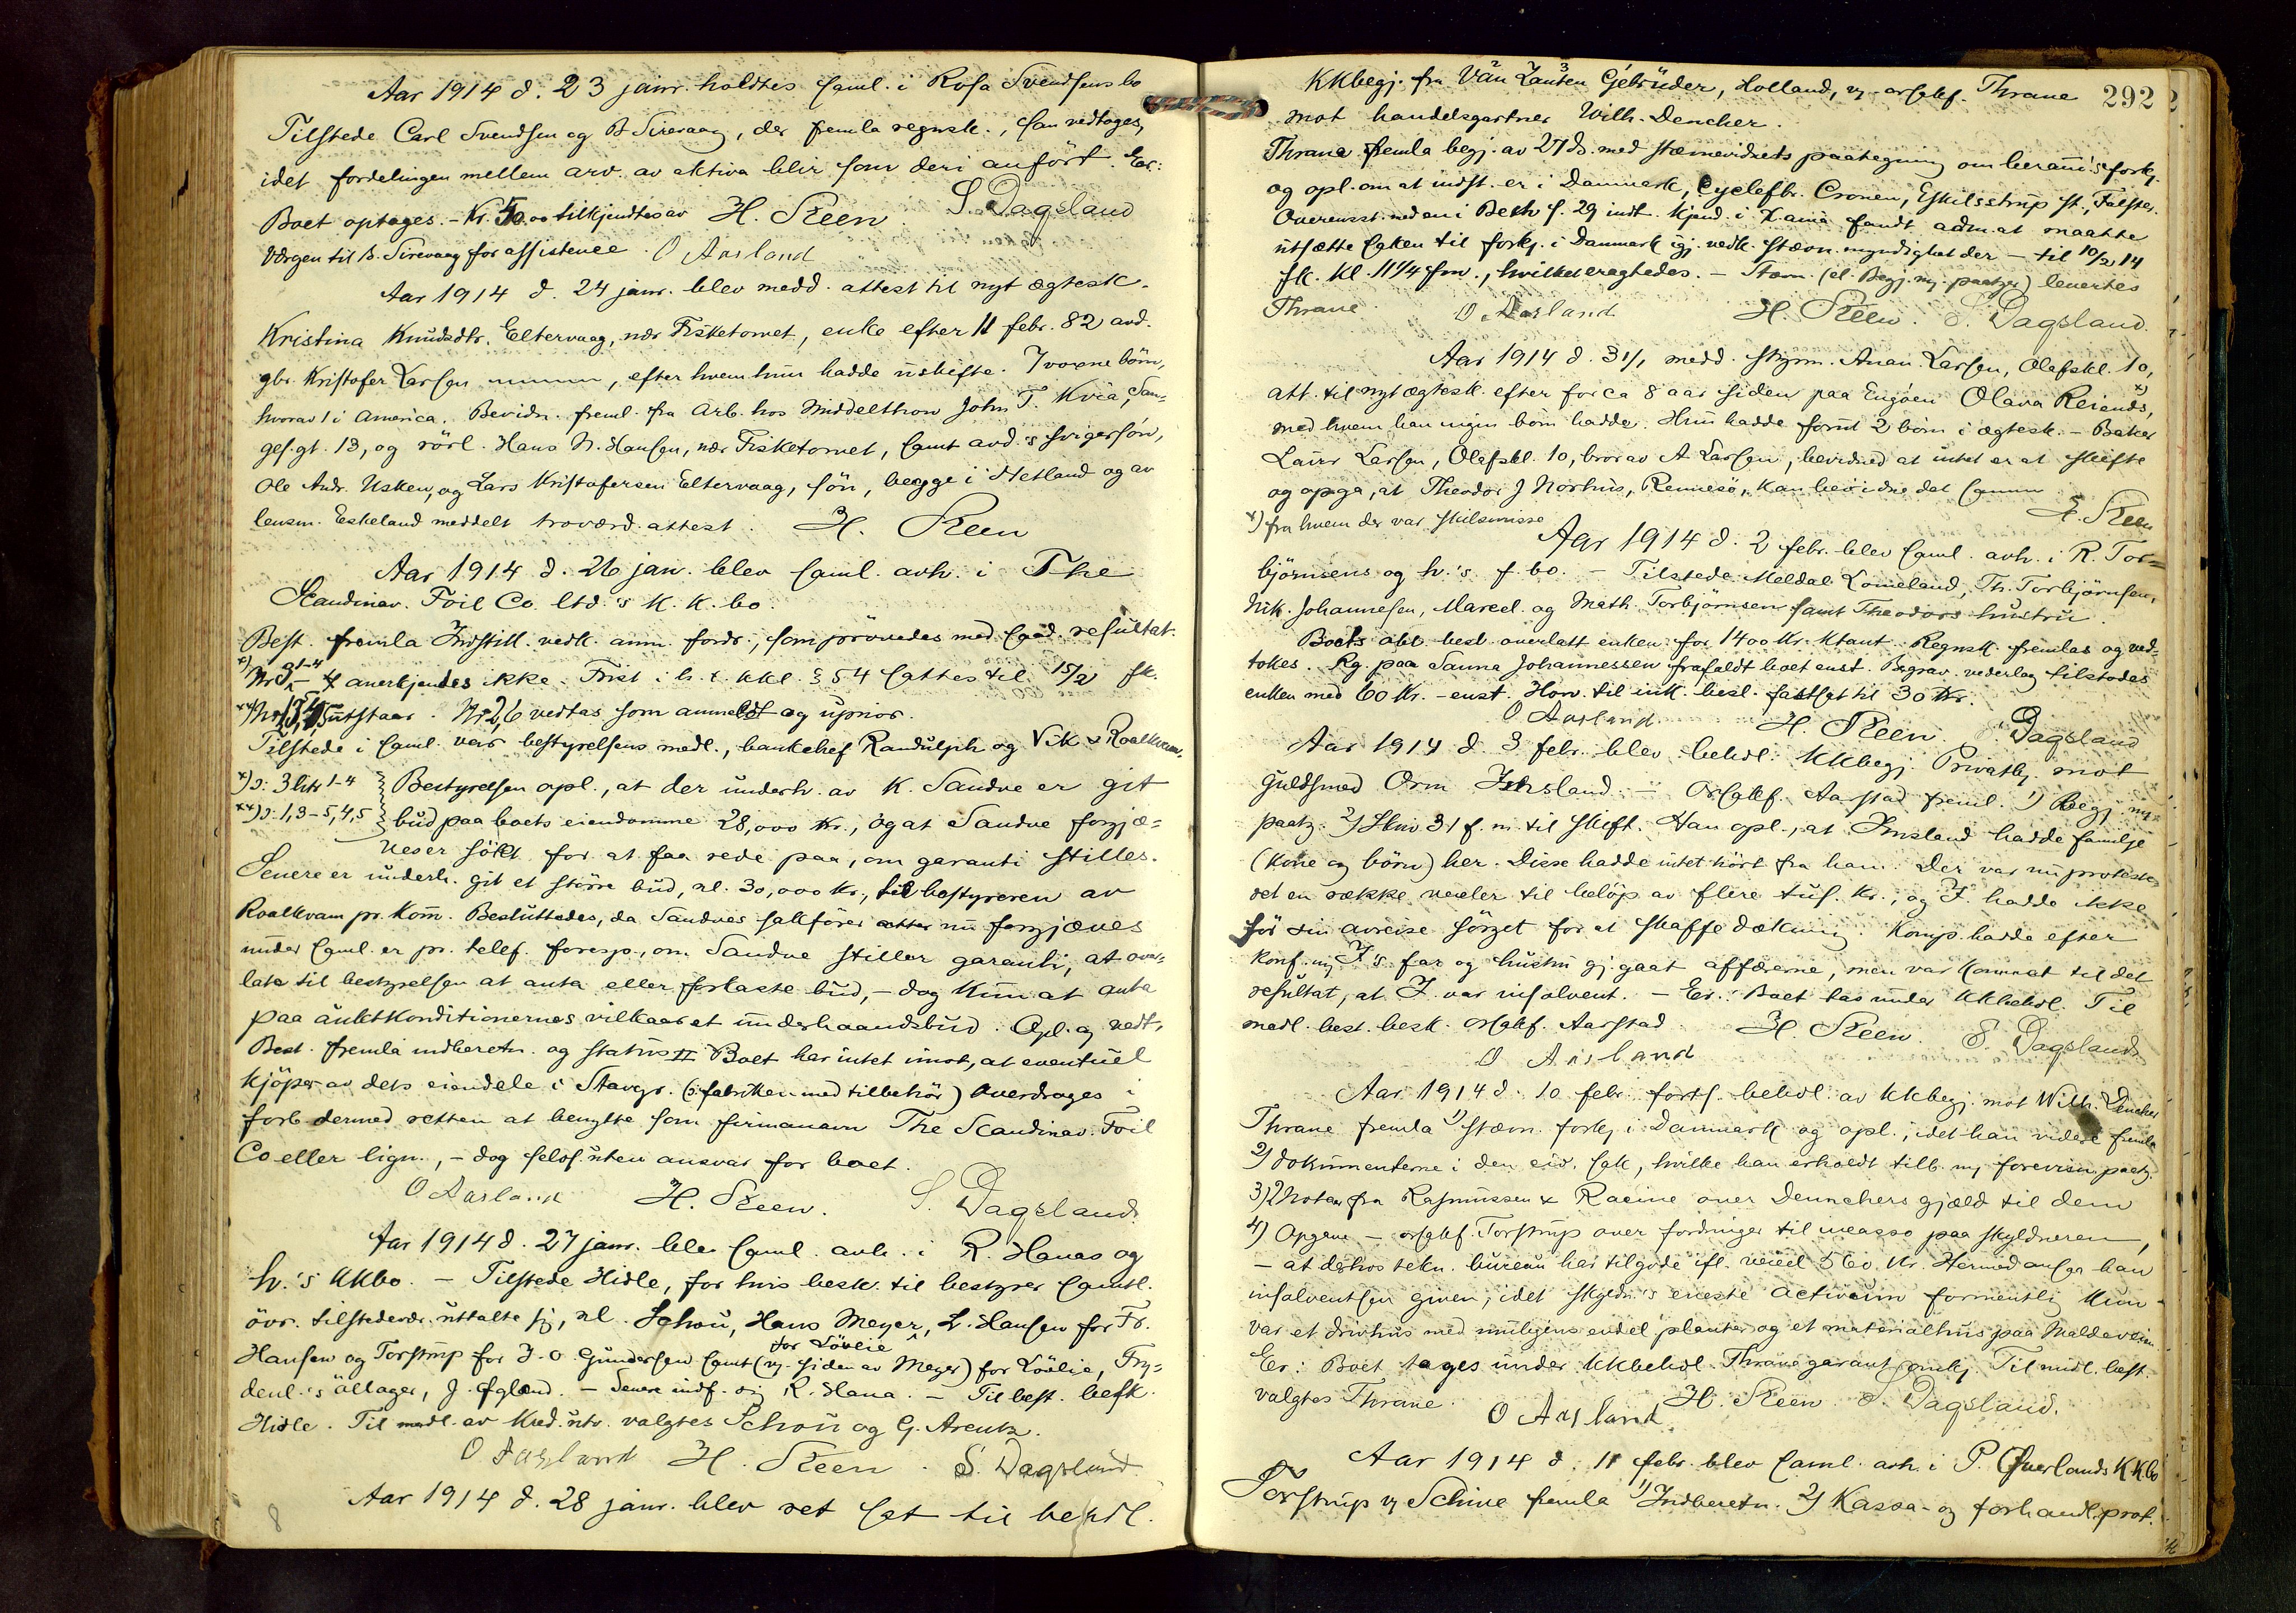 Aar 1914 d. 23 janr. holdtes saml. i Rosa Svendsens bo
Tilstede Carl Svendsen og B Sirevaag, der fremla regnsk., som vedtoges,
idet fordelingen mellem arv. av aktiva blir som deri anført. Er:
Boet optages. - Kr. 50.00 tilkjendtes av H. Steen S. Dagsland
Værgen til B. Sirevaag for assistence. O Aarland
Aar 1914 d. 24 janr. blev medd. attest til nyt ægtesk.
Kristina Knudsdtr. Eltervaag, nær Fisketorvet, enke efter 11 febr. 82 avd.
gbr. Kristofer Larsen, efter hvem hun hadde uskifte. 7 voxne børn,
hvorav 1 i America. Bevidn. freml. fra arb. hos Middelthon John T. Kvia, San-
gesgt. 13, og rörl. Hans N. Hansen, nær Fisketorvet, samt avd.'s svigersön,
Ole Andr. Usken, og Lars Kristofersen Eltervaag, sön, begge i Hetland og av
lensm. Eskeland meddelt troværd. attest. H. Steen
Aar 1914 d. 26 jan. blev saml. avh. i The
Scandinav. Foil Co. ltd.'s K.K.bo.
Best. fremla Indstill. vedk. anm. fordr., som prövedes med saad. resultat.
x) Nr 3 1-4 anerkjendes ikke. Frist i h. t. kkl. § 54 sattes til 15/2 fk.
xx) Nr utstaar. Nr 2, 6 vedtas som anmeldt og uprior.
Tilstede i saml. var bestyrelsens medl., bankchef Randulph og Vik & Roalkvam.
x) ɔ: 3 litr 1-4 Bestyrelsen opl., at der underh. av K. Sandve er git
xx) ɔ: 1, 3-5, 4, 5 bud paa boets eiendomme 28,000 Kr., og at Sandve forgjæ=
ves er sökt for at faa rede paa, om garanti stilles.
Senere er underh. git et större bud, nl. 30,000 Kr., til bestyreren av
Roalkvam pr. kom. Besluttedes, da Sandves sakförer atter nu forgjæves
under saml. er pr. telef. foresp., om Sandve stiller garanti, at over-
lata til bestyrelsen at anta eller forkaste bud, - dog kun at anta
paa auktkonditionernes vilkaar et underhaandsbud. Opl. og vedt.
Best. fremla indberetn. og status II Boet har intet imot, at eventuel
kjöper av dets eiendele i Stavgr. (ɔ: fabrikken med tilbehör) overdrages i
forb. dermed retten at benytte som firmanavn The Scandinav. Foil
Co eller lign., - dog selvs. uten ansvar for boet.
O Aarland H. Steen. S. Dagsland
Aar 1914 d. 27 janr. blev saml. avh. i R. Hanas og
h.'s kkbo. - Tilstede Hidle, for hvis besk. til bestyrer samtl.
övr. tilstedevær. uttalte sig, nl. Schou, Hans Meyer, L. Hansen for Fr.
for Lövlie
Hansen og Torstrup for J. O. Gundersen samt (vg. siden av Meyer) for Lövlie, Fry=
denl.'s öllager, J. Øglænd. - Senere indf. sig R. Hana. - Til best. besk.
Hidle. Til medl. av kred.utv. valgtes Schou og G. Arentz.
O Aarland H. Steen. S. Dagsland
Aar 1914 d. 28 janr. blev ret sat til behdl.
8
292
KKbegj. fra Van Zanten Gebrüder, Holland, vg. orsakf. Thrane
mot handelsgartner Wilh. Dencher.
Thrane fremla begj. av 27 ds. med stævnevidnets paategning om beram. og forkj.
og opl. om at indst. er i Danmark, Cyclefbr. Cronen, Eskilsstrup st., Falster.
Overensst. med en i Besk s. 29 indt. kjend. i fandt adm. at maatte
utsætte saken til forkj. i Danmark gj. vedk. stævn. myndigheder - til 10/2 14
fk. kl. 11 1/4 fm., hvilket eragtedes. - Stævn. (el. Begj. m. paatgn.) levertes
Thrane O Aarland H. Steen. S. Dagsland.
Aar 1914 d. 31/1 medd. styrm. Anan. Larsen, Olafskl. 10,
att. til nyt ægtesk. efter for ca 8 aar siden paa Engöen Olava Reiends, x)
med hvem han ingen børn hadde. Hun hadde forut 2 børn i ægtesk. - Baker
Laurs Larsen, Olafskl. 10, bror av A Larsen, bevidned at intet er at skifte
og opga, at Theodor J Norhus, Rennesö, kan bevidne det samme
x) fra hvem der var skilsmisse H. Steen
Aar 1914 d. 2 febr. blev saml. avh. i R. Tor=
björnsens og h.'s f.bo. - Tilstede Meldal Lomeland, Th. Torbjörnsen,
Nik. Johannesen, Marcel. og Math. Torbjörnsen samt Theodors hustru.
Boets akt. besl. overlatt enken for 1400 Kr. ktant. Regnsk. fremlas og ved=
tokes. Rg. paa Sanna Johannessen frafaldt boet enst. Begrav. vederlag tilstodes
enken med 60 Kr. - enst. Hon. til ink. besl. fastsat til 30 Kr.
O Aarland H. Steen S. Dagsland
Aar 1914 d. 3 febr. blev behdl. KKbegj. Privatbk. mot
guldsmed Orm Imsland. - Orsakf. Aarstad freml. 1) Begj. m.
paatg. 2) Skriv 31 f. m. til Skift. Han opl., at Imsland hadde familje
(kone og börn) her. Disse hadde intet hört fra ham. Der var nu protester-
et en række vexler til belöp av flere tus. Kr., og I. hadde ikke
för sin avreise sörget for at skaffe dækning. Komp. hadde efter
konf. m. I's far og hustru gj.gaat affærerne, men var kommet til det
resultat, at I. var insolvent. - Er.: Boet tas under kkbehdl. Til
medl. best. besk. orsakf. Aarstad H. Steen. S. Dagsland
O Aarland
Aar 1914 d. 10 febr. forts. behdl. av kkbegj. mot Wilh. Dencher
Thrane fremla 1) stævn. forkj. i Danmark og opl., idet han videre fremla
2) dokumenterne i den eid. sak, hvilke han erholdt tilb. m. forevisn.paatg.
3) 2 Notaer fra Rasmussen & Racine over Dennchers gjæld til dem
4) Opgave - orsakf. Torstrup over fordringer til incasso paa skyldneren,
- at derhos tekn. bureau har tilgode ifl. vexel 560 Kr. Hermed ansaa han
insolventsen given, idet skyldn.'s eneste activum formentlig kun
var et drivhus med muligens endel planter og et materialhus paa Maldeveien.
Er: Boet tages under kkbehdl. Thrane garant. omk. Til midl. best.
valgtes Thrane. O Aarland H. Steen. S. Dagsland.
Aar 1914 d. 11 febr. blev saml. avh. i P. Querlands KKbo
Torstrup vg Schive fremla 1) Indberetn. 2) Kassa- og forhandl.prot.